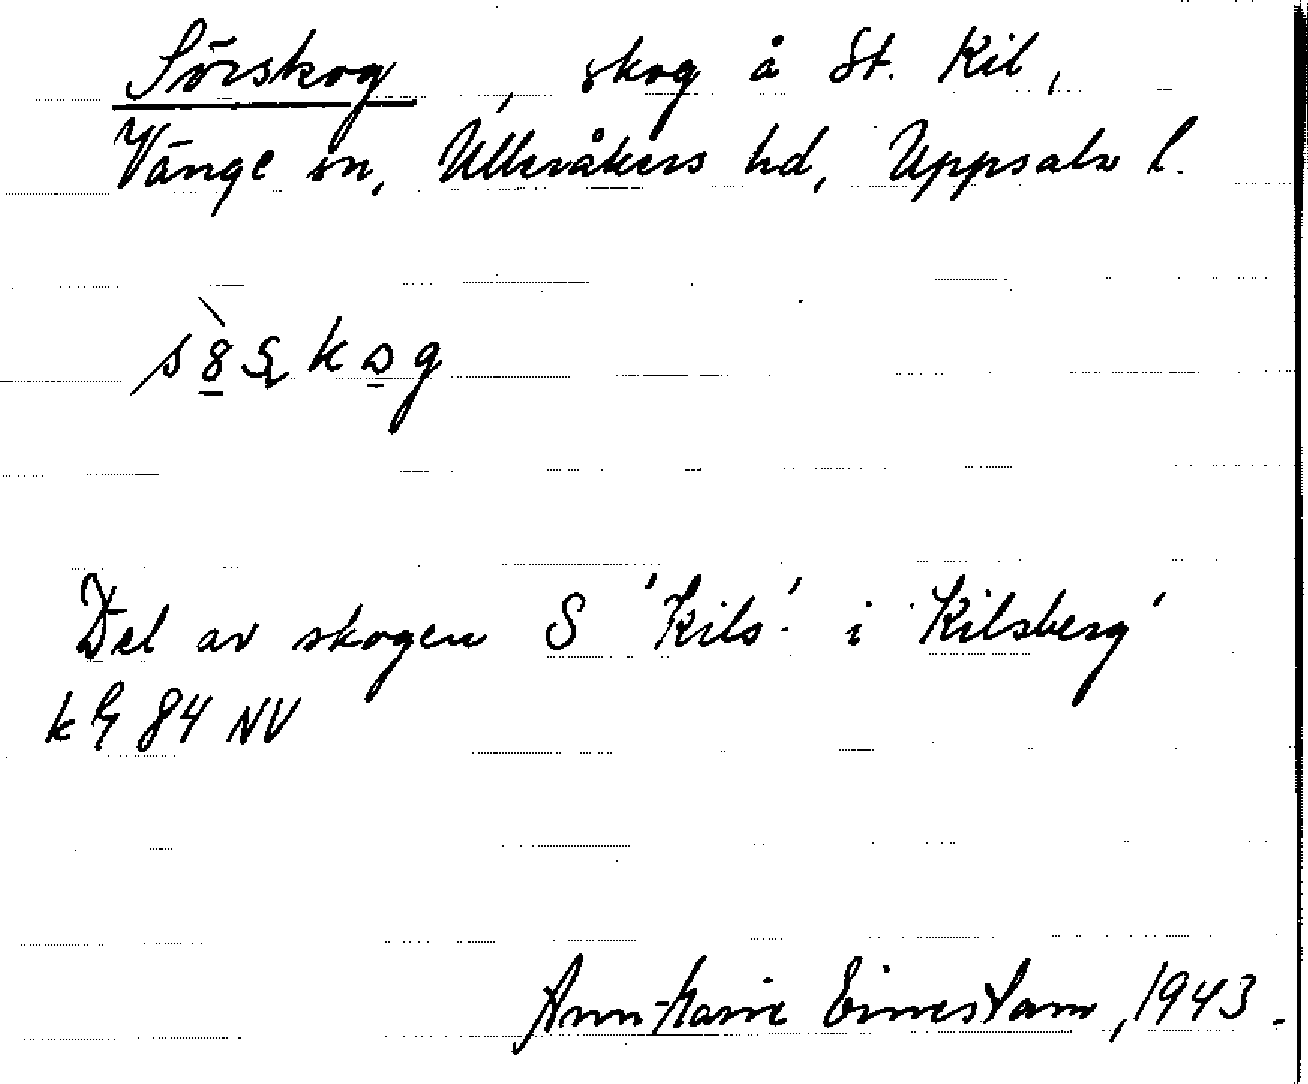 Sörskog, skog å St. Kil,
Vänge sn, Ulleråkers hd, Uppsala l.
Del av skogen S 'Kils'. i 'Kilsberg'
84 NV
Ann-Marie Einestam, 1943.